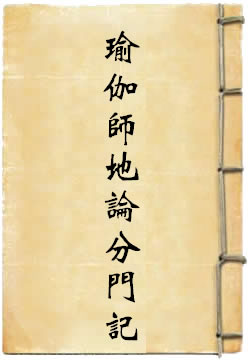 瑜伽師地論分門記